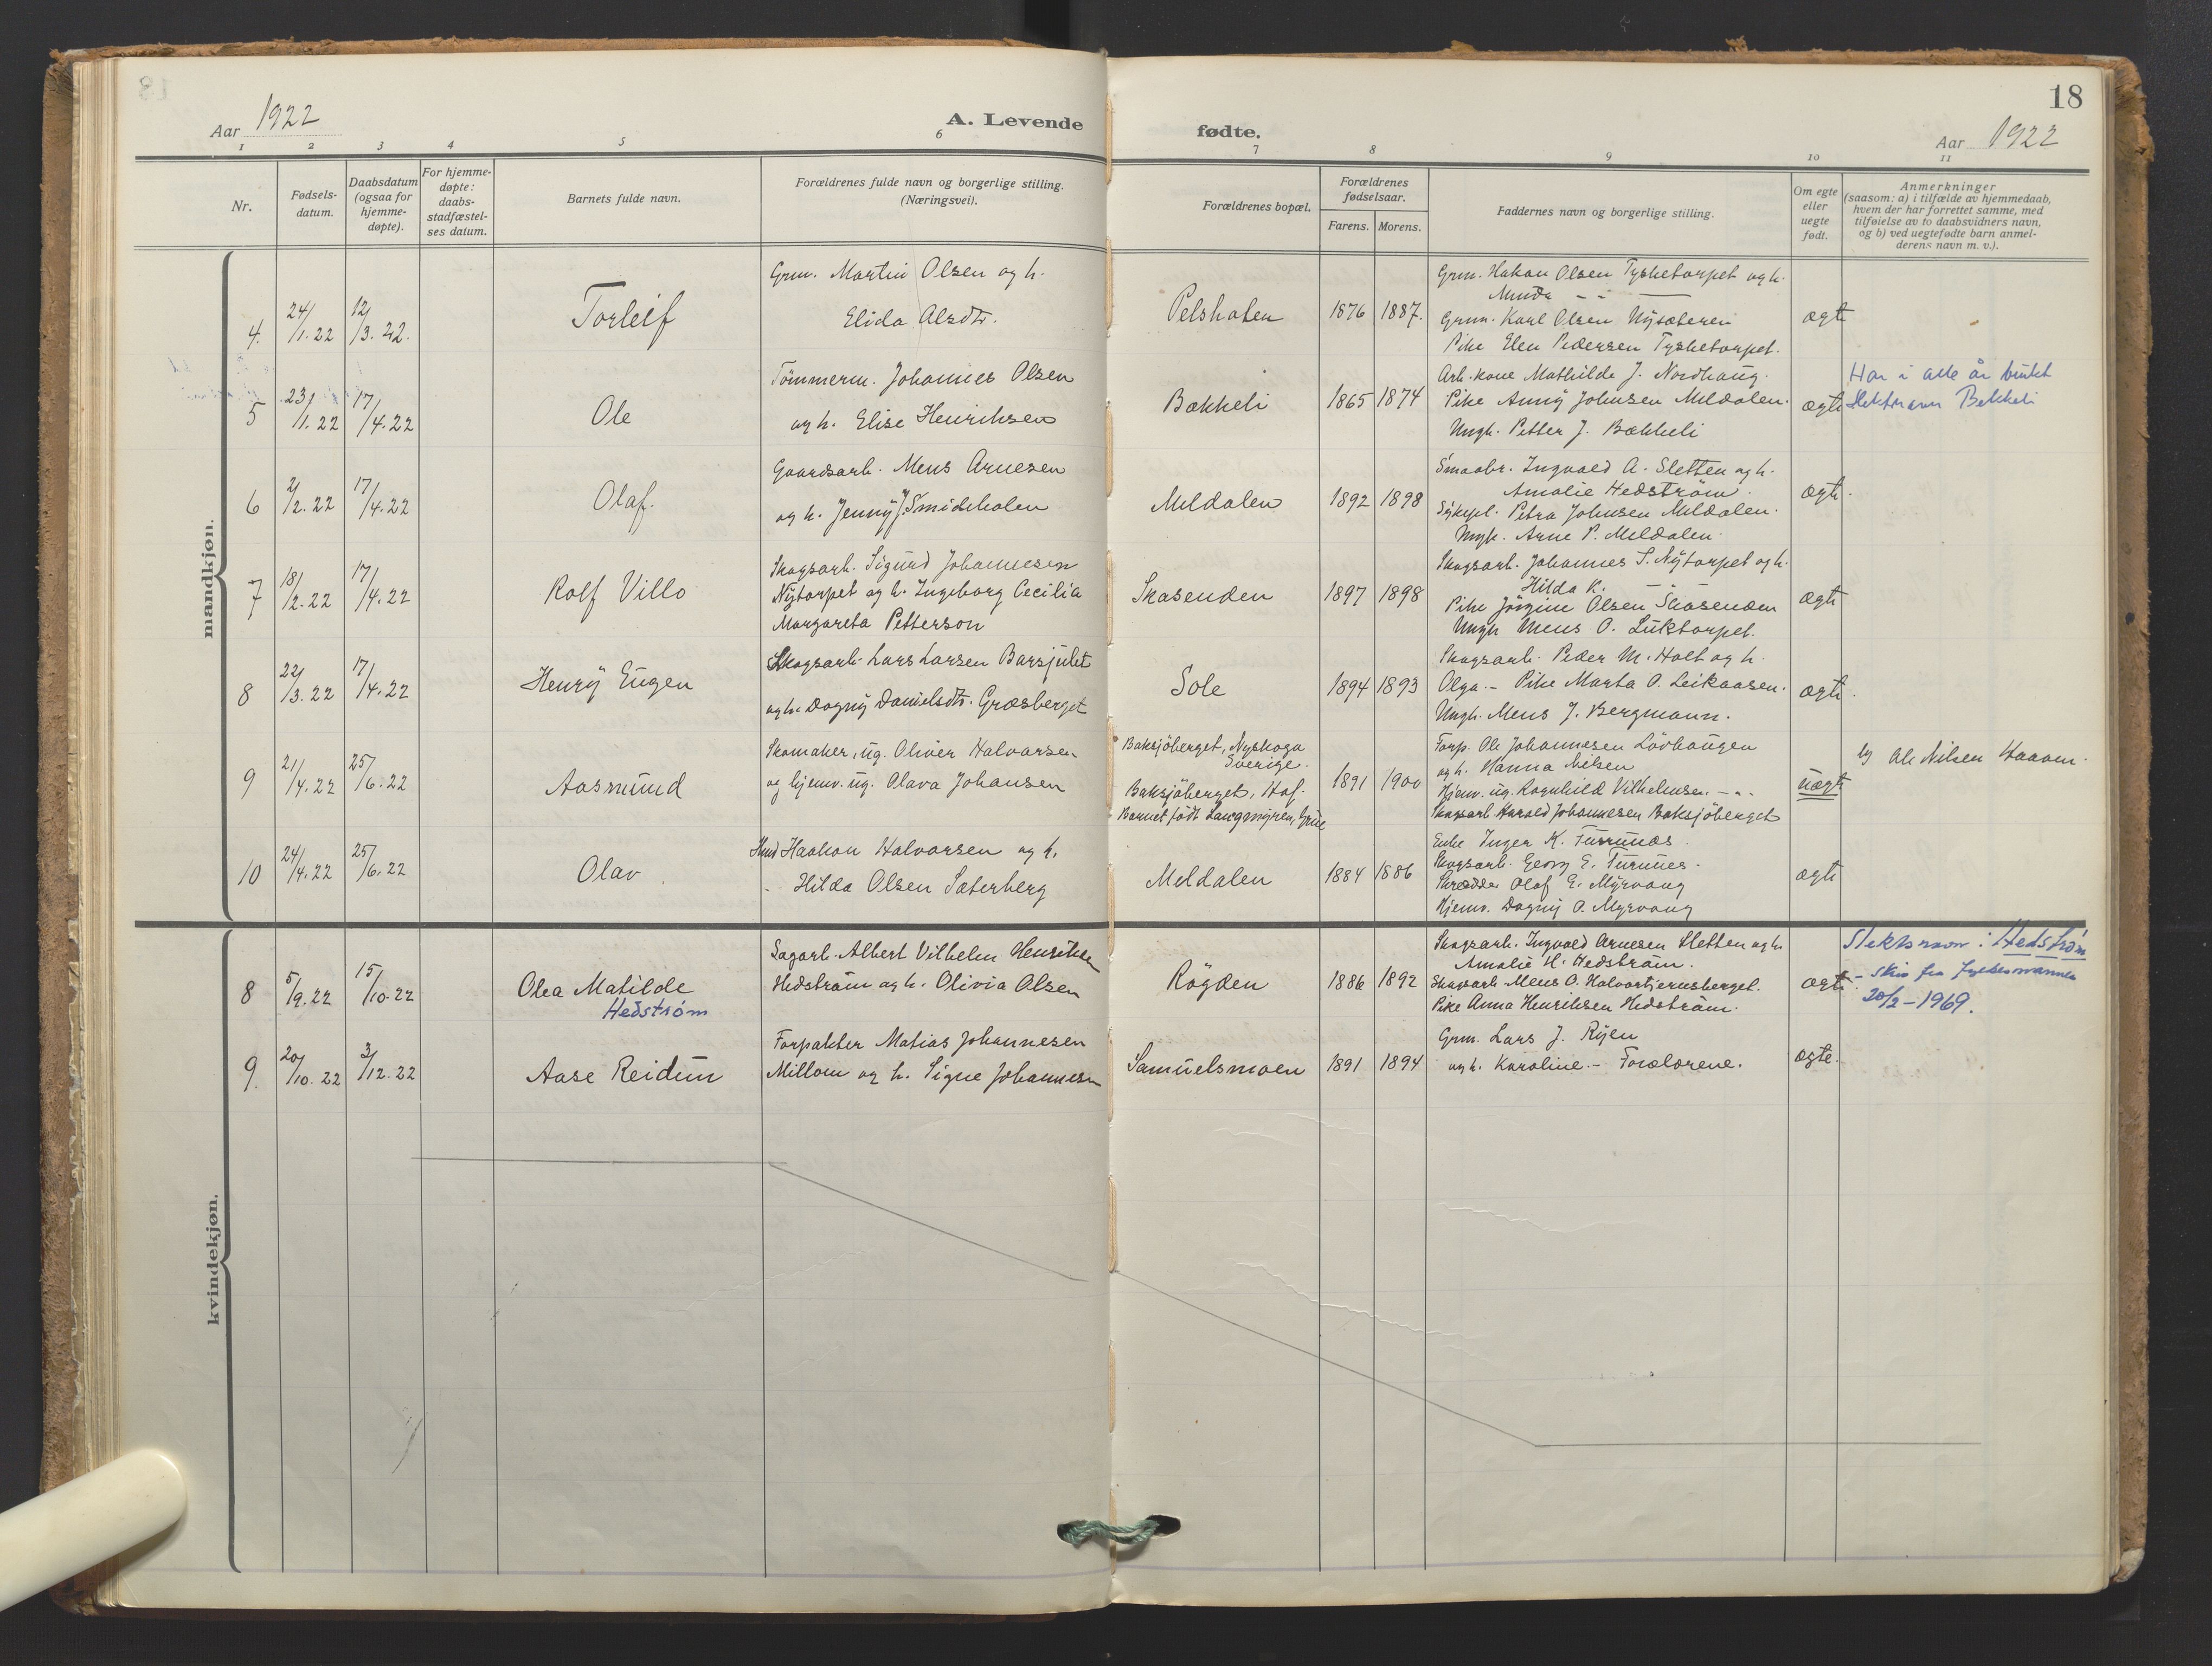 18
Aar 1922
A. Levende fødte.
Aar 1922
1 2 3 4 5 6 7 8 9 10 11
Nr.
Fødsels-
datum.
Daabsdatum
(ogsaa for
hjemme-
døpte).
For hjemme-
døpte:
daabs-
stadfæstel-
ses datum.
Barnets fulde navn.
Forældrenes fulde navn og borgerlige stilling.
(Næringsvei).
Forældrenes bopæl.
Forældrenes
fødselsaar.
Farens. Morens.
Faddernes navn og borgerlige stilling.
Om egte
eller
uegte
født.
Anmerkninger
(saasom: a) i tilfælde av hjemmedaab,
hvem der har forrettet samme, med
tilføielse av to daabsvidners navn,
og b) ved uegtefødte barn anmel-
derens navn m. v.).
mandkjøn.
4. 24/1.22 12/3.22.
Torleif
Grm. Martin Olsen og h.
Elida Alsdtr.
Pelsholen
1876 1887.
Grm. Hakon Olsen Tysketorpet og h.
Minda - -
Grm. Karl Olsen Nysæteren
Pike Elen Pedersen Tysketorpet.
ægte
5 23/1.22 17/4.22
Ole
Tömmerm. Johannes Olsen
og h. Elise Henriksen
Bækkeli
1865 1874
Arb. kone Mathilde J. Nordhaug.
Pike Anny Johnsen Meldalen.
Ungk. Petter J. Bækkeli
ægte
Har i alle år brukt
slektsnavn Bekkeli
6 2/2.22 17/4.22
Olaf.
Gaardsarb. Mens Arnesen
og h. Jenny J. Smideholen
Meldalen
1892 1898
Smaabr. Ingvald A. Sletten og h.
Amalie Hedström.
Sykepl. Petra Johnsen Meldalen.
Ungk. Arne P. Meldalen.
ægte.
7 18/2.22 17/4.22
Rolf Villo
Skogsarb. Sigurd Johannesen
Nytorpet og h. Ingeborg Cecilia
Margareta Petterson
Skasenden
1897 1898
Skogsarb. Johannes S. Nytorpet og h.
Hilda K. -
Pike Jörgine Olsen Skasenden
Ungk Mens O. Luktorpet.
ægte
8 22/3.22 17/4.22
Henry Eugen
Skogsarb. Lars Larsen Barsjulet
og h. Dagny Danielsdtr. Græsberget
Sole
1894 1893
Skogsarb. Peder M. Holt og h.
Olga. - Pike Marta O. Leikaasen.
Ungk. Mens J. Bergmann.
ægte.
9 21/4.22 25/6.22
Aasmund
Skomaker, ug. Oliver Halvorsen
og hjemv. ug. Olava Johansen
Baksjöberget, Nyskoga
Sverige.
Baksjöberget, Hof.
Barnet född Langmyren, Grue
1891 1900
Forp. Ole Johannesen Lövhaugen
og h. Hanna Nilsen
Hjemv. ug. Ragnhild Vilhelmsen. - -
Skogsarb Harald Johannesen Baksjöberget
uægte
Ole Nilsen
10 24/4.22 25/6.22
Olav
Haakon Halvorsen og h.
- Hilda Olsen Sæterberg
Meldalen
1884 1886
Enke Inger K. Furunæs.
Skogsarb. Georg E. Furunes.
Skrædder Olaf E. Myrvang
Hjemv. Dagny O. Myrvang
ægte
kvindekjøn.
8 5/9.22 15/10.22
Olea Matilde
Hedstrøm
Sagarb. Albert Vilhelm Henriksen
Hedström og h. Olivia Olsen
Rögden
1886 1892
Skogsarb. Ingvald Arnesen Sletten og h.
Amalie H. Hedström.
Skogsarb Mens O. Halvortjernsberget.
Pike Anna Henriksen Hedström.
ægte.
Slektsnavn: Hedstrøm
- skiv fra fylkesmannen
20/2-1969.
9. 20/10.22 3/12.22
Aase Reidun
Forpakter Matias Johannesen
Millom og h. Signe Johannesen
Samuelsmoen
1891 1894
Grm. Lars J. Ryen
og h. Karoline. - Forældrene.
ægte.